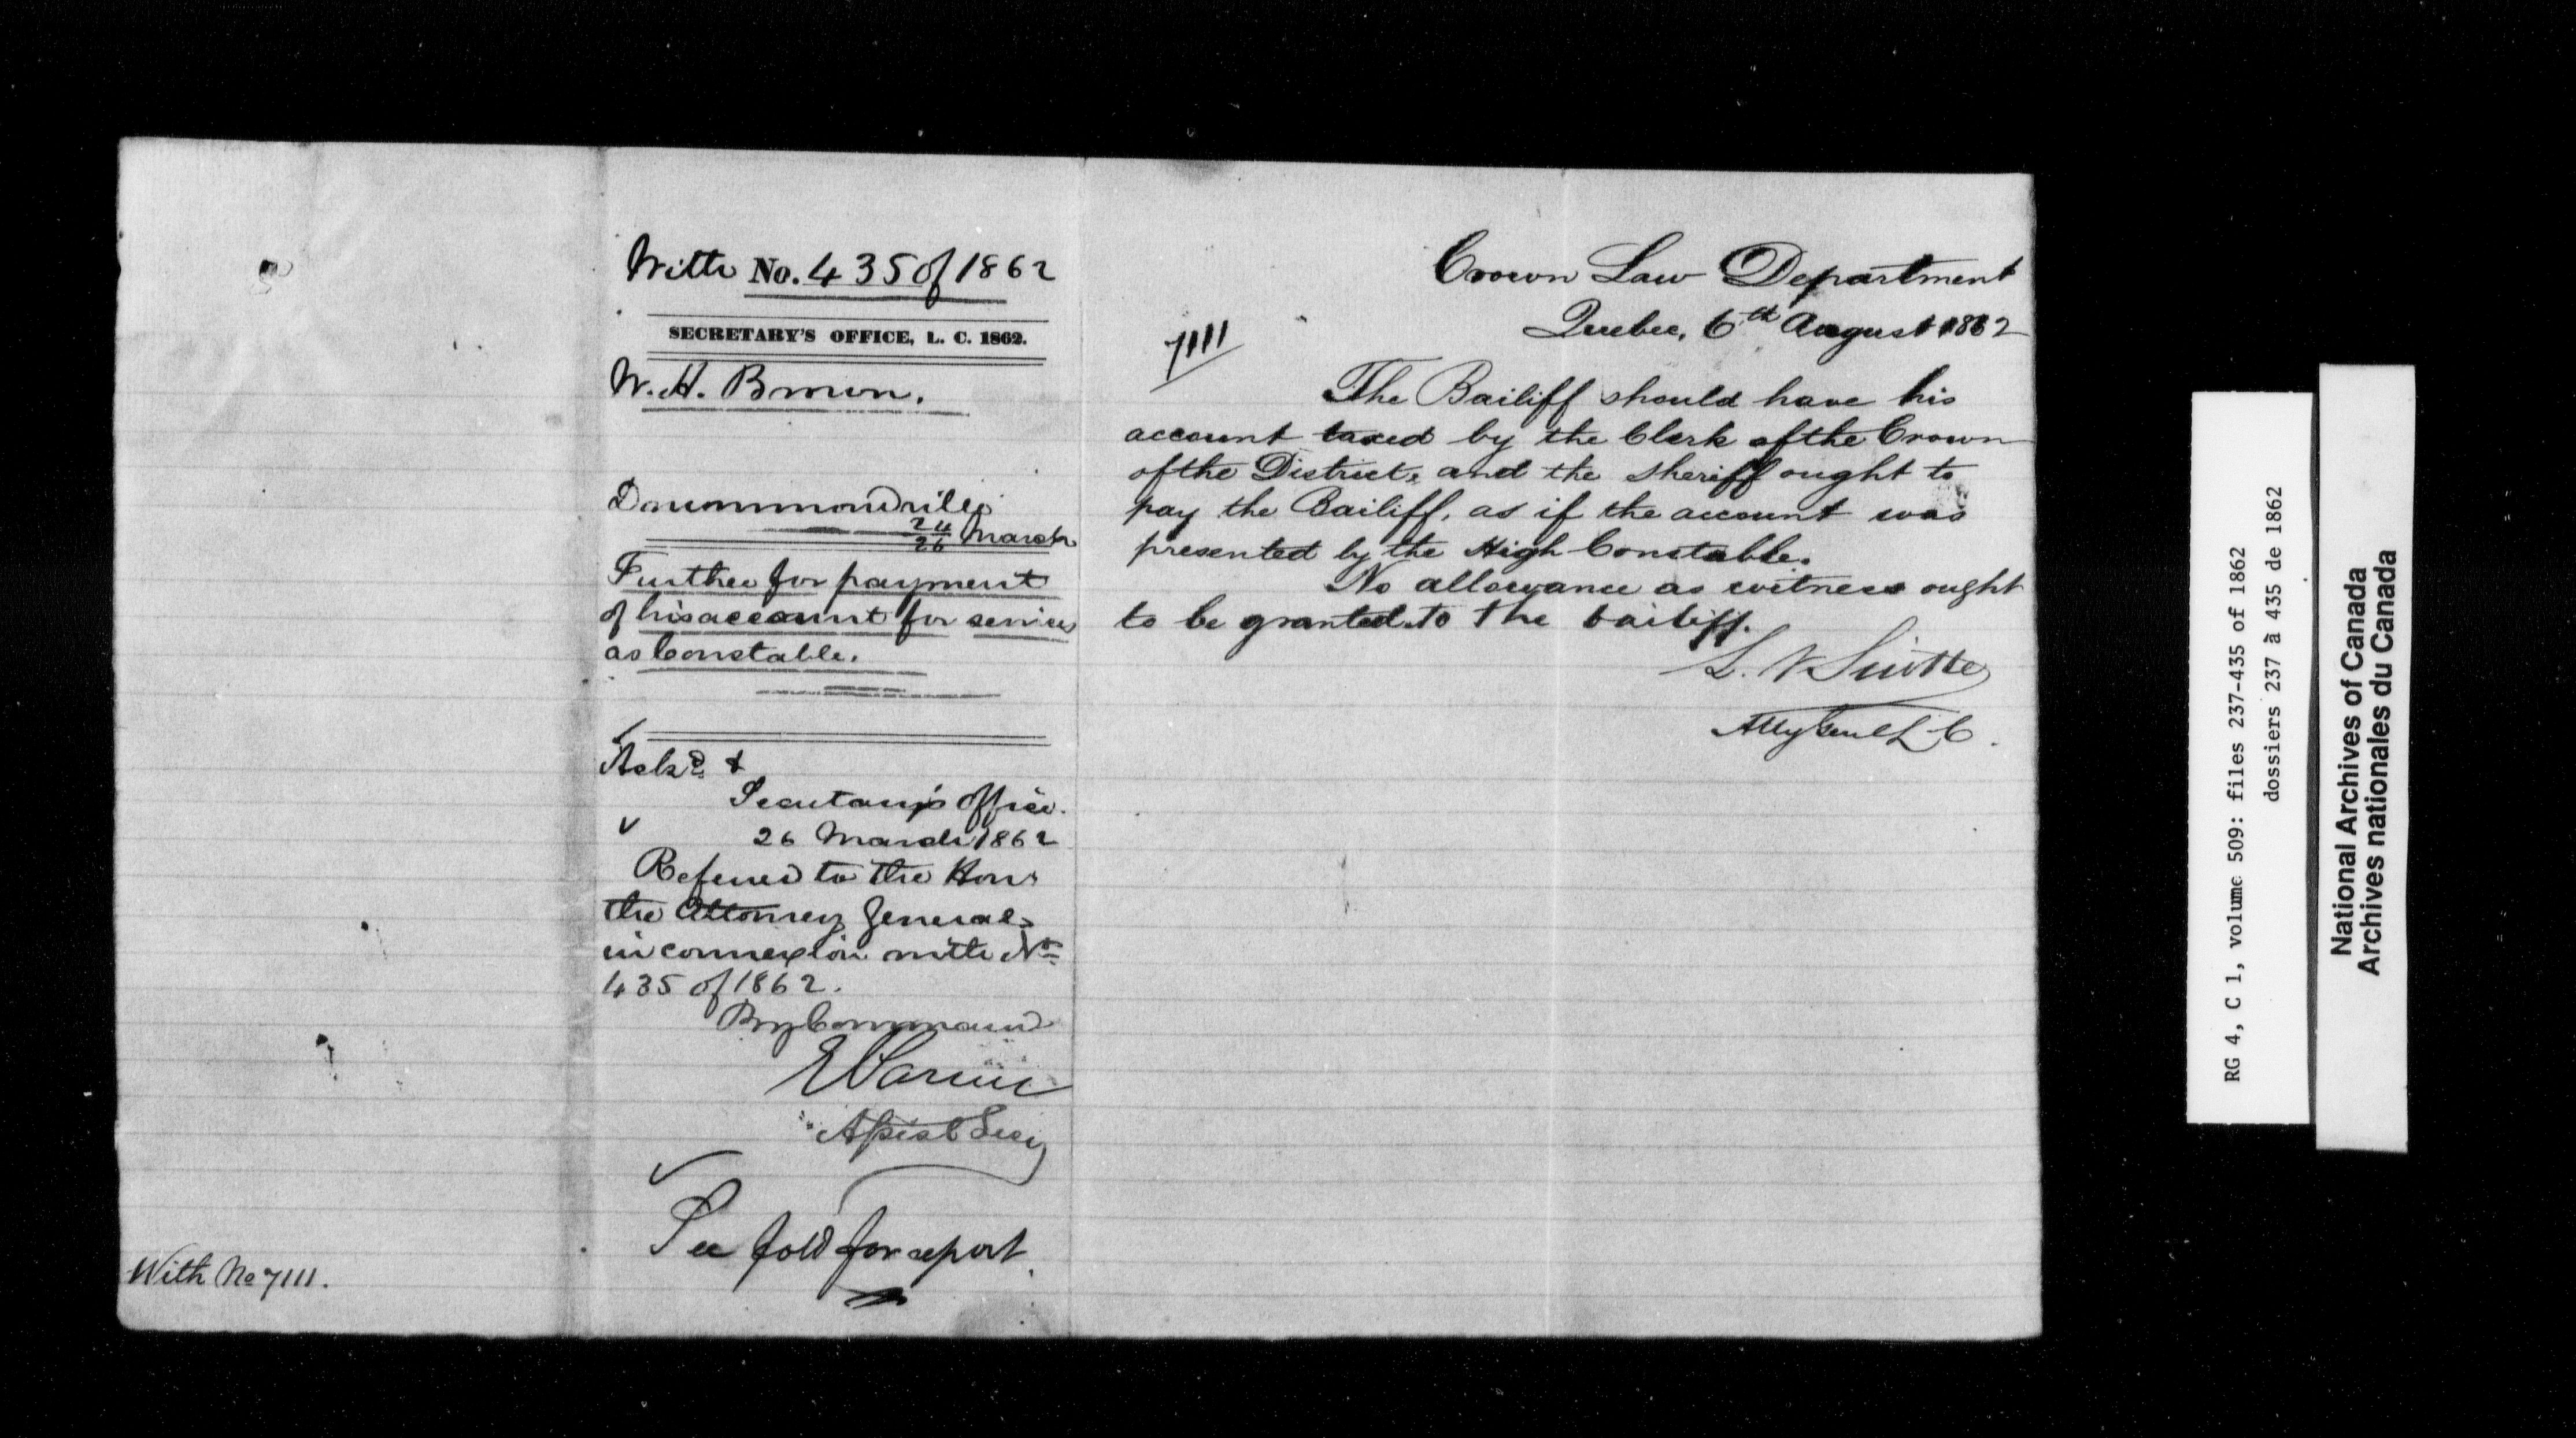 With No. 435 of 1862
SECRETARY'S OFFICE, L. C. 1862.
W. H. Brown.
Drummondville
24
26 March
Further for payment
of his account for services
as Constable.
Ackd. &
Secretary's Office.
26 March 1862
Referred to the Hon.
the Attorney General
in connexion with No.
435 of 1862.
By Command
Assist Secy
See fold for report.
With No 7111.
Crown Law Department
Quebec, 6th August 1862
7111
The Bailiff should have his
account taxed by the Clerk of the Crown
of the District, and the Sheriff ought to
pay the Bailiff, as if the account was
presented by the High Constable.
No allowance as witness ought
to be granted to the bailiff.
L. V Sicotte
Atty Genl L C.
RG 4, C 1, volume 509: files 237-435 of 1862
dossiers 237 à 435 de 1862
National Archives of Canada
Archives nationales du Canada